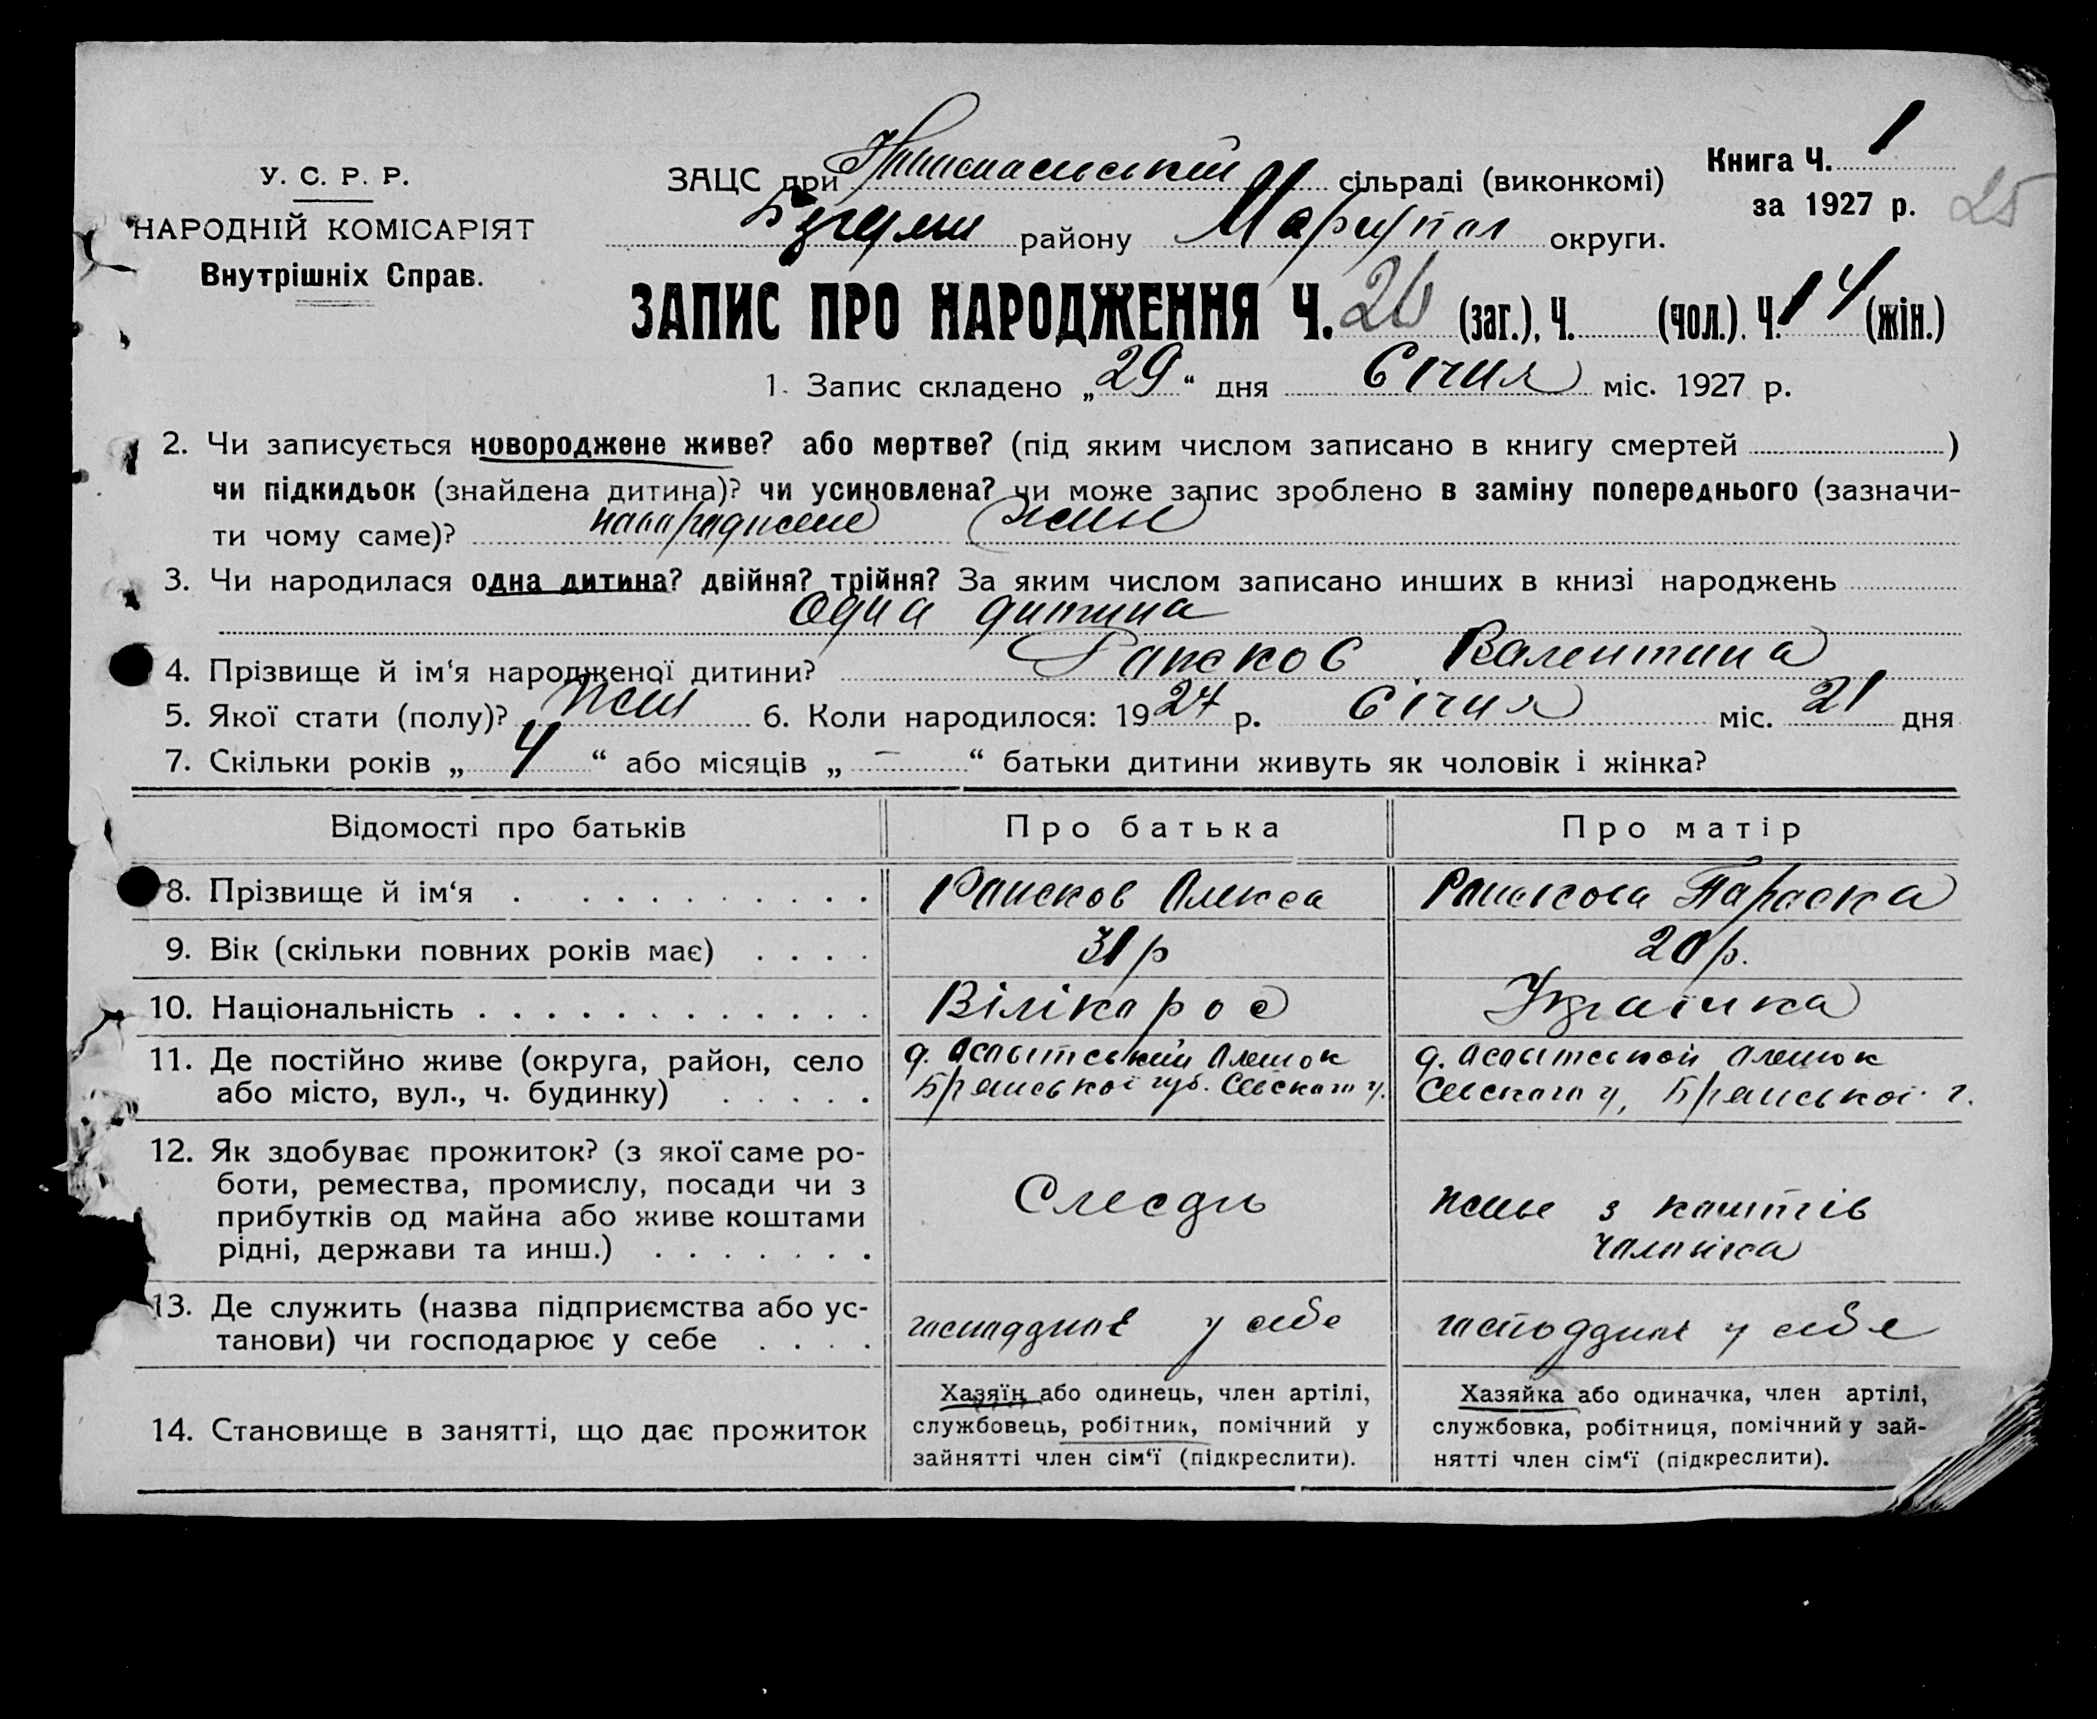 У. С. Р. Р.
НАРОДНІЙ КОМІСАРІЯТ
Внутрішніх Справ.
ЗАЦС при сільраді (виконкомі)
району Маріупол округи.
Книга Ч. 1
за 1927 р.
25
ЗАПИС ПРО НАРОДЖЕННЯ Ч. 26 (заг.), Ч. (чол.). Ч. 14 (жін.)
1. Запис складено „29“ дня Січня міс. 1927 р.
2. Чи записується новороджене живе? або мертве? (під яким числом записано в книгу смертей )
чи підкидьок (знайдена дитина)? чи усиновлена? чи може запис зроблено в заміну попереднього (зазначи-
ти чому саме)?
3. Чи народилася одна дитина? двійня? трійня? За яким числом записано инших в книзі народжень
одна дитина
4. Прізвище й ім‘я народженої дитини? Валентина
5. Якої стати (полу)? жін 6. Коли народилося: 1927 р. Січня міс. 21 дня
7. Скільки років „ 4 “ або місяців „ — “ батьки дитини живуть як чоловік і жінка?
Відомості про батьків Про батька Про матір
8. Прізвище й ім‘я Олекса Параска
9. Вік (скільки повних років має) 31 р 20 р.
10. Національність Вілікарос Українка
11. Де постійно живе (округа, район, село
або місто, вул., ч. будинку)
Брянської губ. Севскаго у.
Севскаго у, Брянської г.
12. Як здобуває прожиток? (з якої саме ро-
боти, ремества, промислу, посади чи з
прибутків од майна або живе коштами
рідні, держави та инш.)
живе з каштів
чалавіка
13. Де служить (назва підприємства або ус-
танови) чи господарює у себе
у себе
у себе
14. Становище в занятті, що дає прожиток
Хазяїн або одинець, член артілі,
службовець, робітник, помічний у
зайнятті член сім‘ї (підкреслити).
Хазяйка або одиначка, член артілі,
службовка, робітниця, помічний у зай-
нятті член сім‘ї (підкреслити).